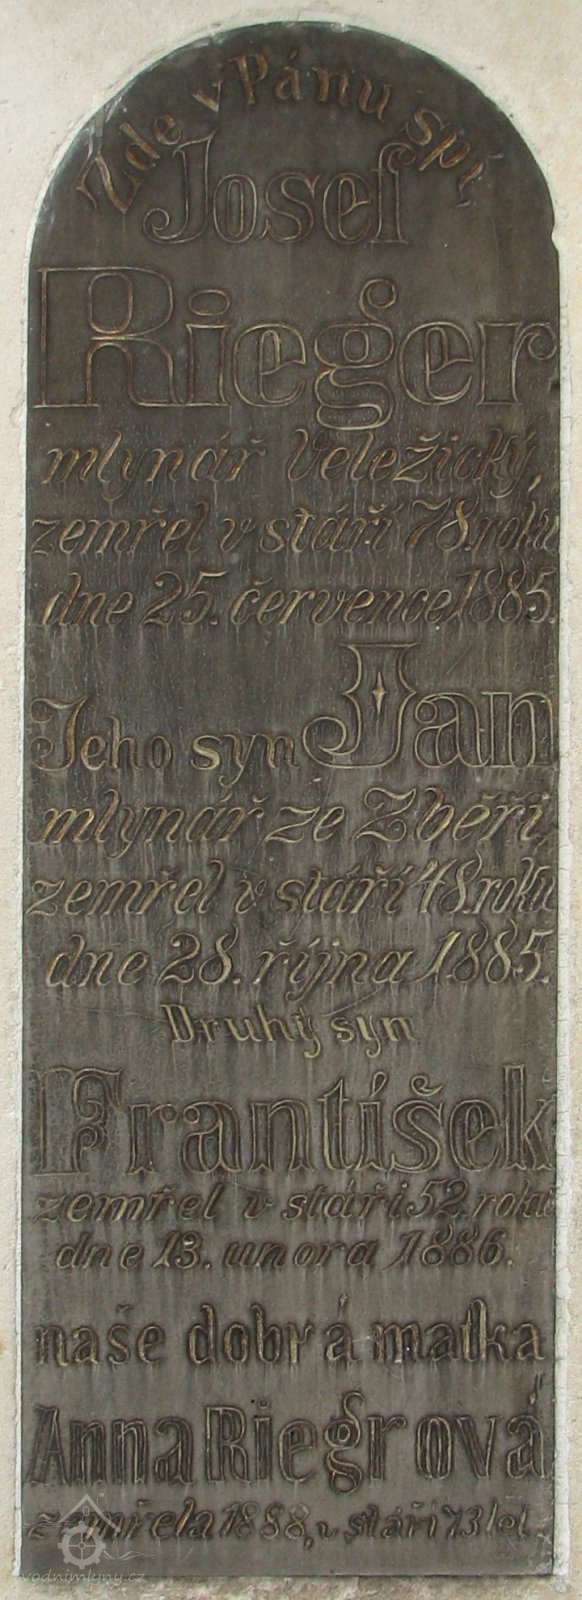 Zde v Pánu spí
Josef
Rieger
mlynář Veležický,
zemřel v stáří 78. roků
dne 25. července 1885.
Jeho syn Jan
mlynář ze Zběři,
zemřel v stáří 48. roků
dne 28. října 1885.
Druhý syn
František
zemřel v stáři 52. roků
dne 13. unora 1886.
naše dobrá matka
Anna Riegrová
zemřela 1888, v stáří 73 let.
vodnimlyny.cz